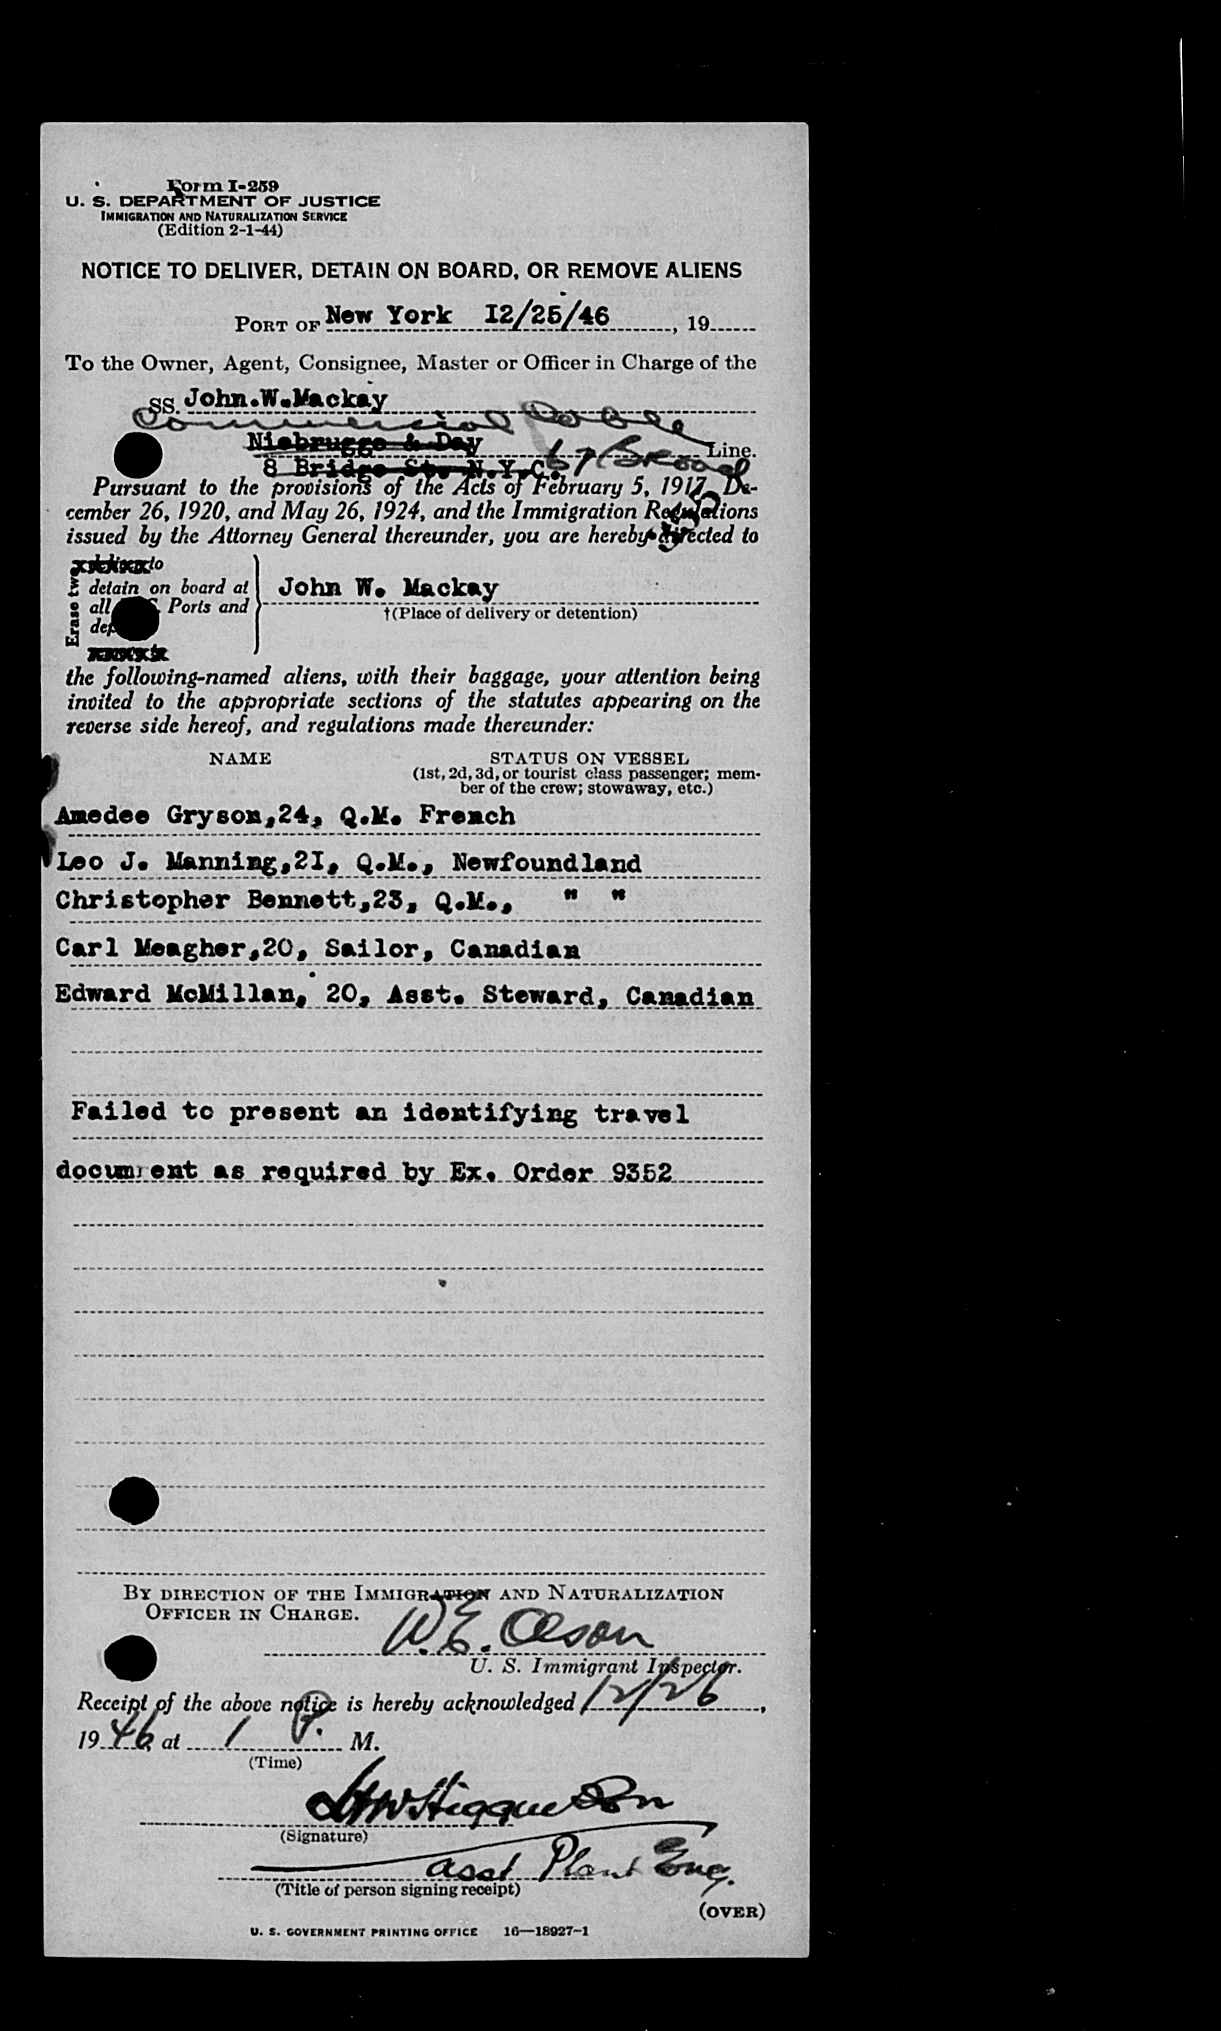 Form I-259
U. S. DEPARTMENT OF JUSTICE
IMMIGRATION AND NATURALIZATION SERVICE
(Edition 2-1-44)
NOTICE TO DELIVER, DETAIN ON BOARD, OR REMOVE ALIENS
PORT OF New York 12/25/46, 19
To the Owner, Agent, Consignee, Master or Officer in Charge of the
SS. John.W.Mackay
Commercial Cable
Niebrugge & Day Line.
67 Broad
8 Bridge St. N.Y.C.
Pursuant to the provisions of the Acts of February 5, 1917, De-
cember 26, 1920, and May 26, 1924, and the Immigration Regulations
issued by the Attorney General thereunder, you are hereby directed to
Erase two
to
detain on board at
all Ports and
John W. Mackay
†(Place of delivery or detention)
the following-named aliens, with their baggage, your attention being
invited to the appropriate sections of the statutes appearing on the
reverse side hereof, and regulations made thereunder:
NAME STATUS ON VESSEL
(1st, 2d, 3d, or tourist class passenger; mem-
ber of the crew; stowaway, etc.)
Amedee Gryson,24, Q.M. French
Leo J. Manning,2I, Q.M., Newfoundland
Christopher Bennett,23, Q.M., " "
Carl Meagher,20, Sailor, Canadian
Edward McMillan, 20, Asst. Steward, Canadian
Failed to present an identifying travel
document as required by Ex. Order 9352
BY DIRECTION OF THE IMMIGRATION AND NATURALIZATION
OFFICER IN CHARGE.
W.E. Olson
U. S. Immigrant Inspector.
Receipt of the above notice is hereby acknowledged 12/26,
1946 at 1 P. M.
(Time)
Higginson
(Signature)
Asst Plant Eng.
(Title of person signing receipt)
(OVER)
U. S. GOVERNMENT PRINTING OFFICE 16—18927-1